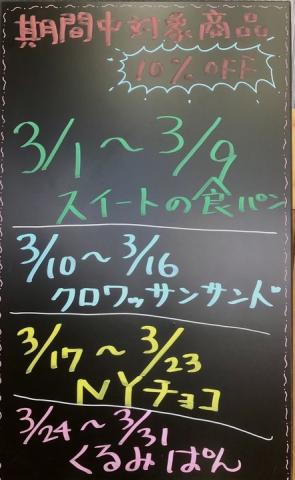 期間中対象商品
10% OFF
3/1～3/9
スイートの食パン
3/10～3/16
クロワッサンサンド
3/17～3/23
NYチョコ
3/24～3/31
くるみぱん